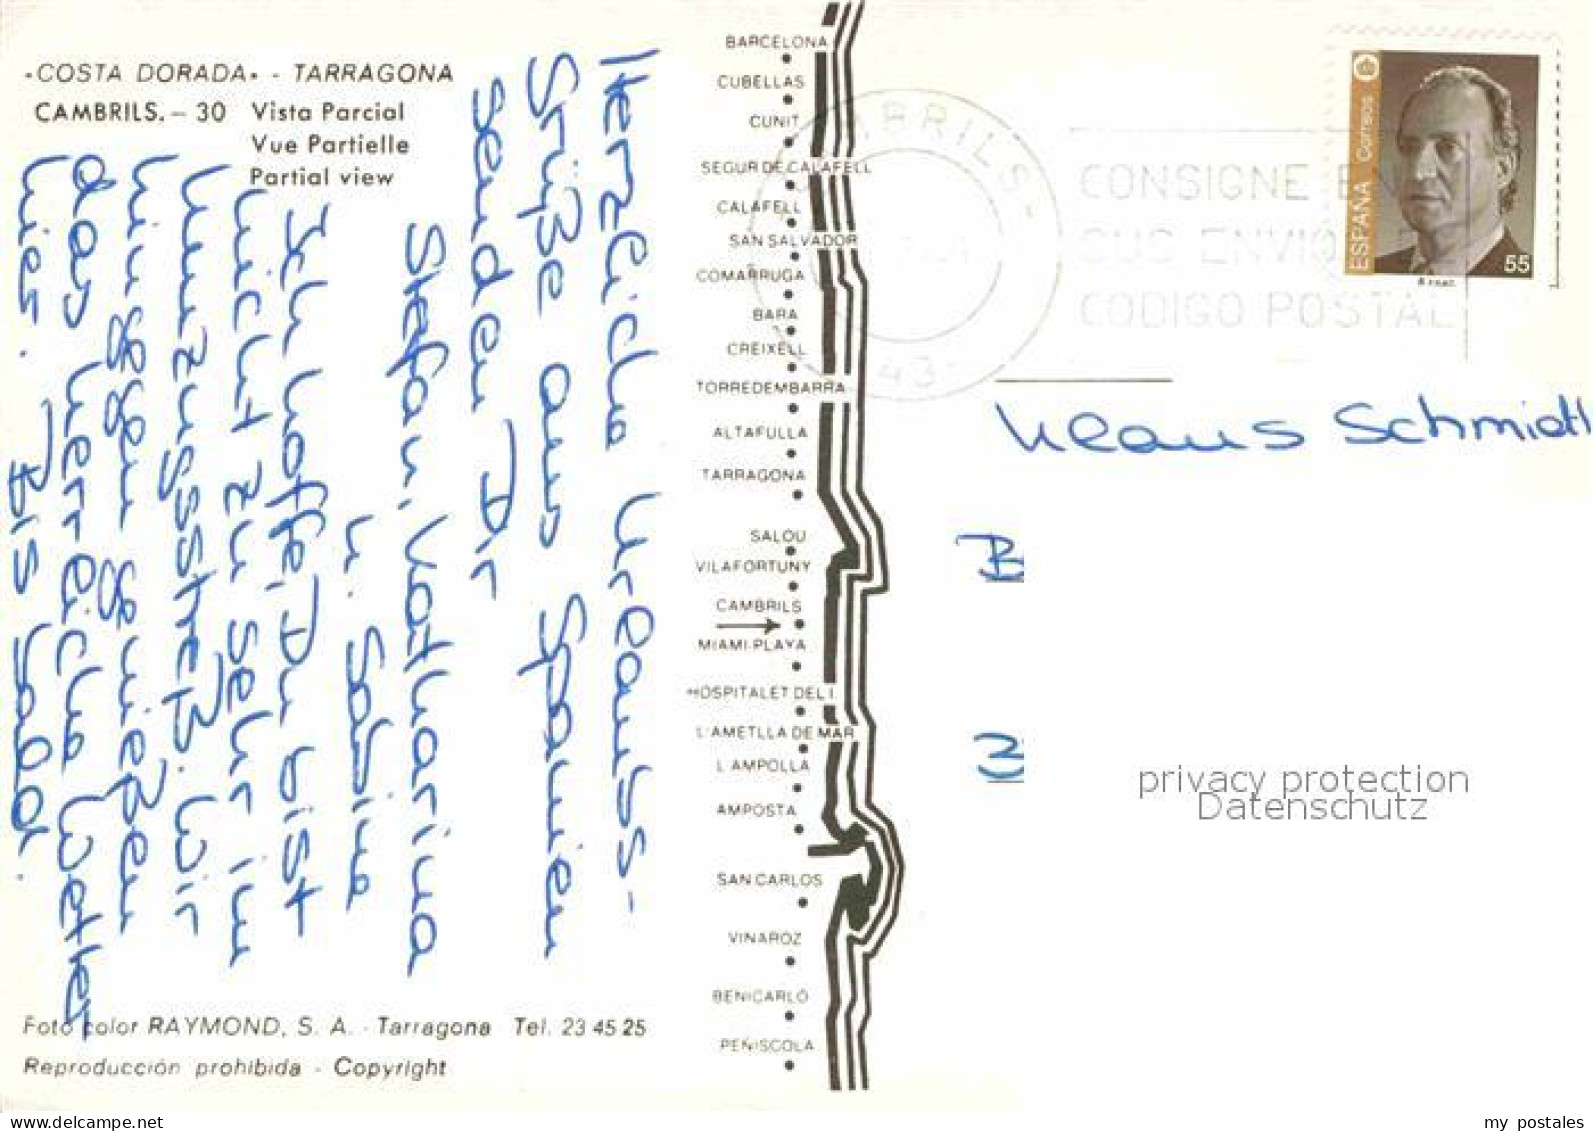 «COSTA DORADA» - TARRAGONA
CAMBRILS. – 30 Vista Parcial
Vue Partielle
Partial view
Herzliche Urlaubs-
Grüße aus Spanien
senden Dir
Stefan, Katharina
u. Sabine
Ich hoffe, Du bist
nicht zu sehr im
Umzugsstreß. Wir
hingegen genießen
das herrliche Wetter
hier. Bis bald.
Foto color RAYMOND, S. A. - Tarragona Tel. 23 45 25
Reproducción prohibida - Copyright
BARCELONA
CUBELLAS
CUNIT
SEGUR DE CALAFELL
CALAFELL
SAN SALVADOR
COMARRUGA
BARA
CREIXELL
TORREDEMBARRA
ALTAFULLA
TARRAGONA
SALOU
VILAFORTUNY
CAMBRILS
MIAMI-PLAYA
HOSPITALET DEL I.
L'AMETLLA DE MAR
L'AMPOLLA
AMPOSTA
SAN CARLOS
VINAROZ
BENICARLÓ
PEÑISCOLA
CAMBRILS -
43
CONSIGNE EN
SUS ENVIOS
CODIGO POSTAL
ESPAÑA Correos
55
Klaus Schmidt
B
3
privacy protection
Datenschutz
my_postales